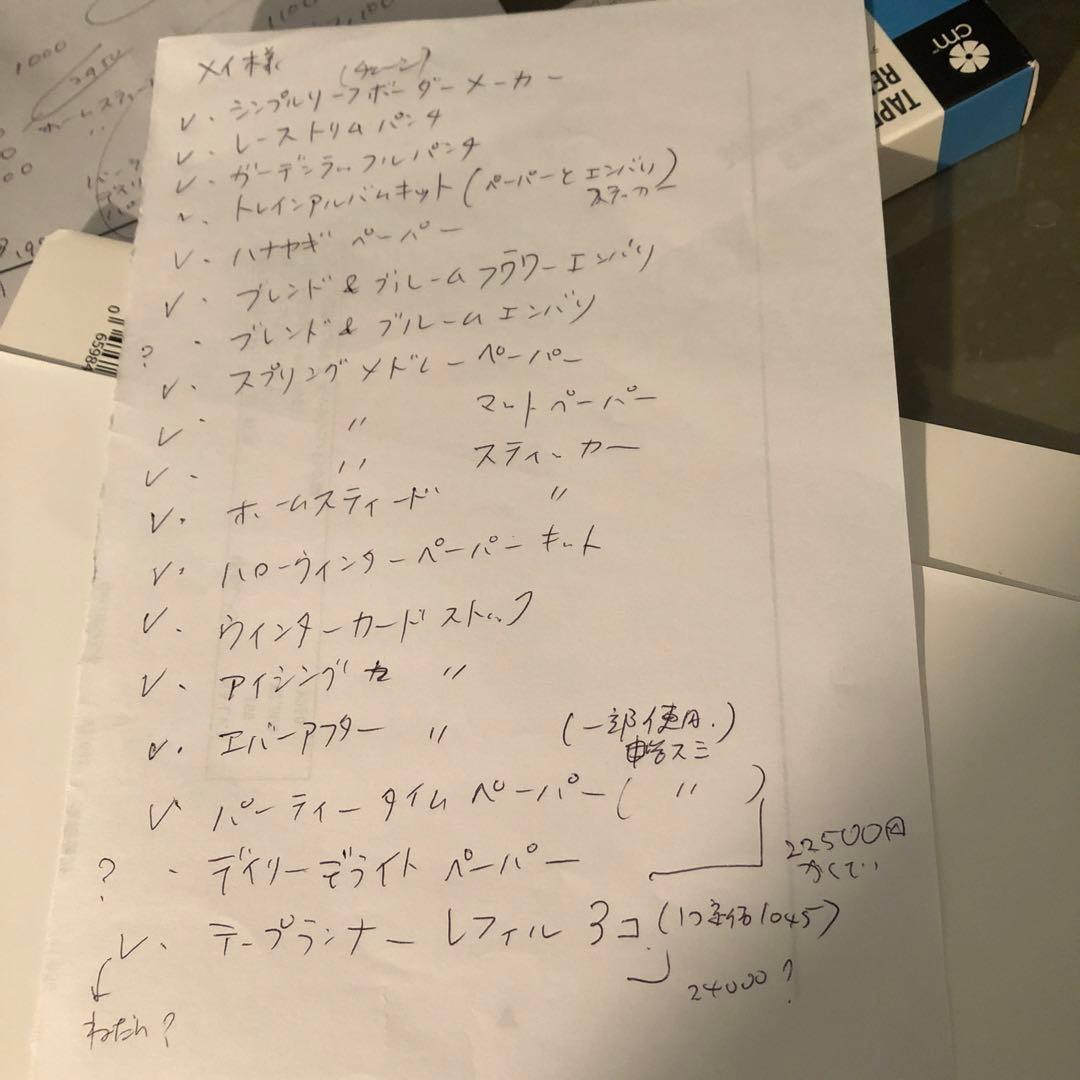 1000
2950
1100
ホームスティード
メイ様
(チェーン)
✓・シンプルリーフボーダーメーカー
✓・レーストリムパンチ
✓・ガーデンラッフルパンチ
✓・トレインアルバムキット(ペーパーとエンバリ
ステッカー)
✓・ハナヤギ ペーパー
✓・ブレンド&ブルームフラワーエンバリ
?・ブレンド&ブルームエンバリ
✓・スプリングメドレーペーパー
✓・〃 マットペーパー
✓・〃 スティッカー
✓・ホームスティード 〃
✓・ハローウィンターペーパーキット
✓・ウィンターカードストック
✓・アイシング 〃
✓・エバーアフター 〃 (一部使用.)
スミ
✓・パーティータイムペーパー(〃)
?・デイリーデライトペーパー
22500円
✓・テープランナーレフィル3コ(1コ定価1045)
24000?
ねだん?
cm
TAPE
RE
0 65984